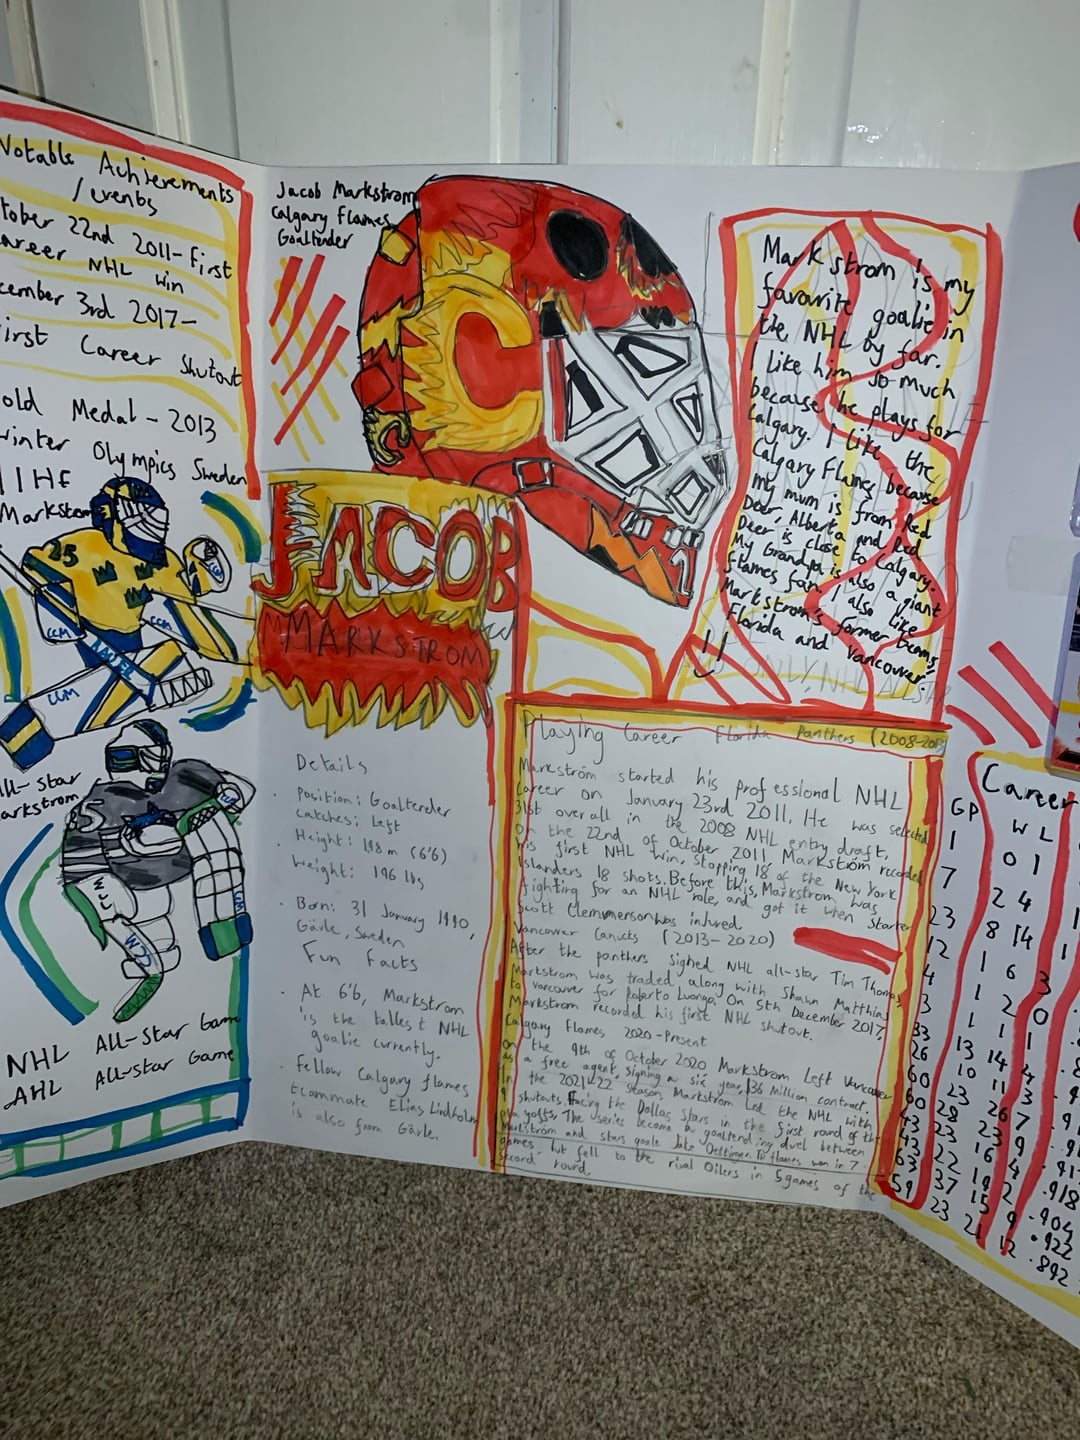 Notable Achievements
/events
tober 22nd 2011-first
areer NHL win
cember 3rd 2017-
First Career Shutout
old Medal - 2013
winter Olympics Sweden
IIHF
Markstrom
25
CCM
CCM
CCM
All-Star
Markstrom
NHL All-Star Game
AHL All-star Game
Jacob Markstrom
Calgary Flames
Goaltender
C
JACOB
MARKSTROM
Details
· Position: Goaltender
· Catches: Left
· Height: 198m (6'6)
· Weight: 196 lbs
· Born: 31 January 1990,
Gärle, Sweden
Fun Facts
· At 6'6, Markstrom
is the tallest NHL
goalie currently.
· Fellow Calgary flames
teammate Elias Lindholm
is also from Gärle.
Markstrom is my
favourite goalie in
the NHL by far.
I like him so much
because he plays for
Calgary. I like the
Calgary Flames because
my mum is from Red
Deer, Alberta and Red
Deer is close to Calgary.
My Grandpa is also a giant
flames fan. I also like
Markstrom's former teams,
Florida and Vancouver!
Playing Career Florida Panthers (2008-2013
Markström started his professional NHL
career on January 23rd 2011. He was selected
31st overall in the 2008 NHL entry draft,
On the 22nd of October 2011, Markström recorded
his first NHL win, stopping 18 of the New York
Islanders 18 shots. Before this, Markstrom was
fighting for an NHL role, and got it when starter
Scott Clemmerson was injured.
Vancouver Canucks (2013-2020)
After the panthers signed NHL all-star Tim Thomas,
Markstrom was traded along with Shawn Matthias
to vancouver for Roberto Luongo. On 5th December 2017,
Markstrom recorded his first NHL shutout.
Calgary Flames, 2020-Present
On the 9th of October 2020, Markstrom Left Vancouver
as a free agent, signing a six year, $36 million contract.
In the 2021-22 season, Markstrom Led the NHL with
9 shutouts. Facing the Dallas Stars in the first round of the
playoffs, The series become a goaltending duel between
Markstrom and stars goalie Jake Oettinger. The flames won in 7
games, but fell to the rival Oilers in 5 games of the
second round.
Career
GP W L
1 0 1
7 2 4
23 8 14
12 1 6 3
4 1 2 0
3 1 1 1
33 13 14
26 10 11 3
60 23 26 7
60 28 23 9
43 23 16 4
43 22 19 2 .918
63 37 15 9 .922
59 23 21 12 .892
.904